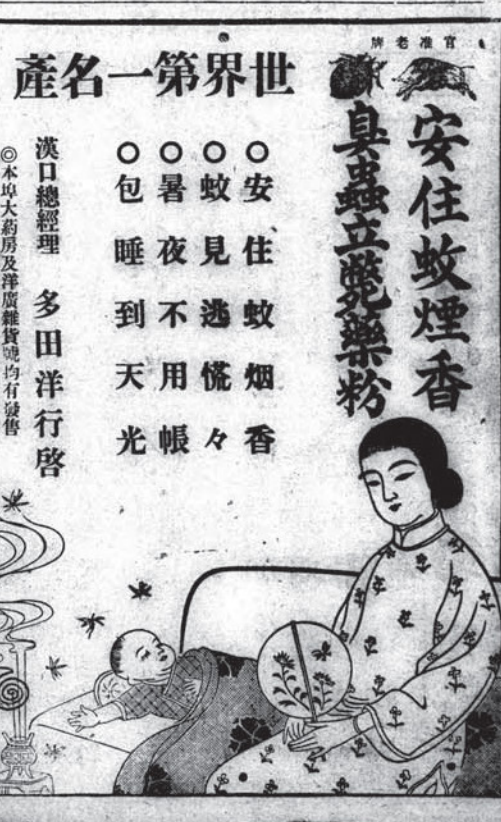 官准老牌
安住蚊煙香
臭蟲立斃藥粉
世界第一名產
○安住蚊烟香
○蚊見逃慌々
○暑夜不用帳
○包睡到天光
漢口總經理 多田洋行啓
◎本埠大葯房及洋廣雜貨號均有發售